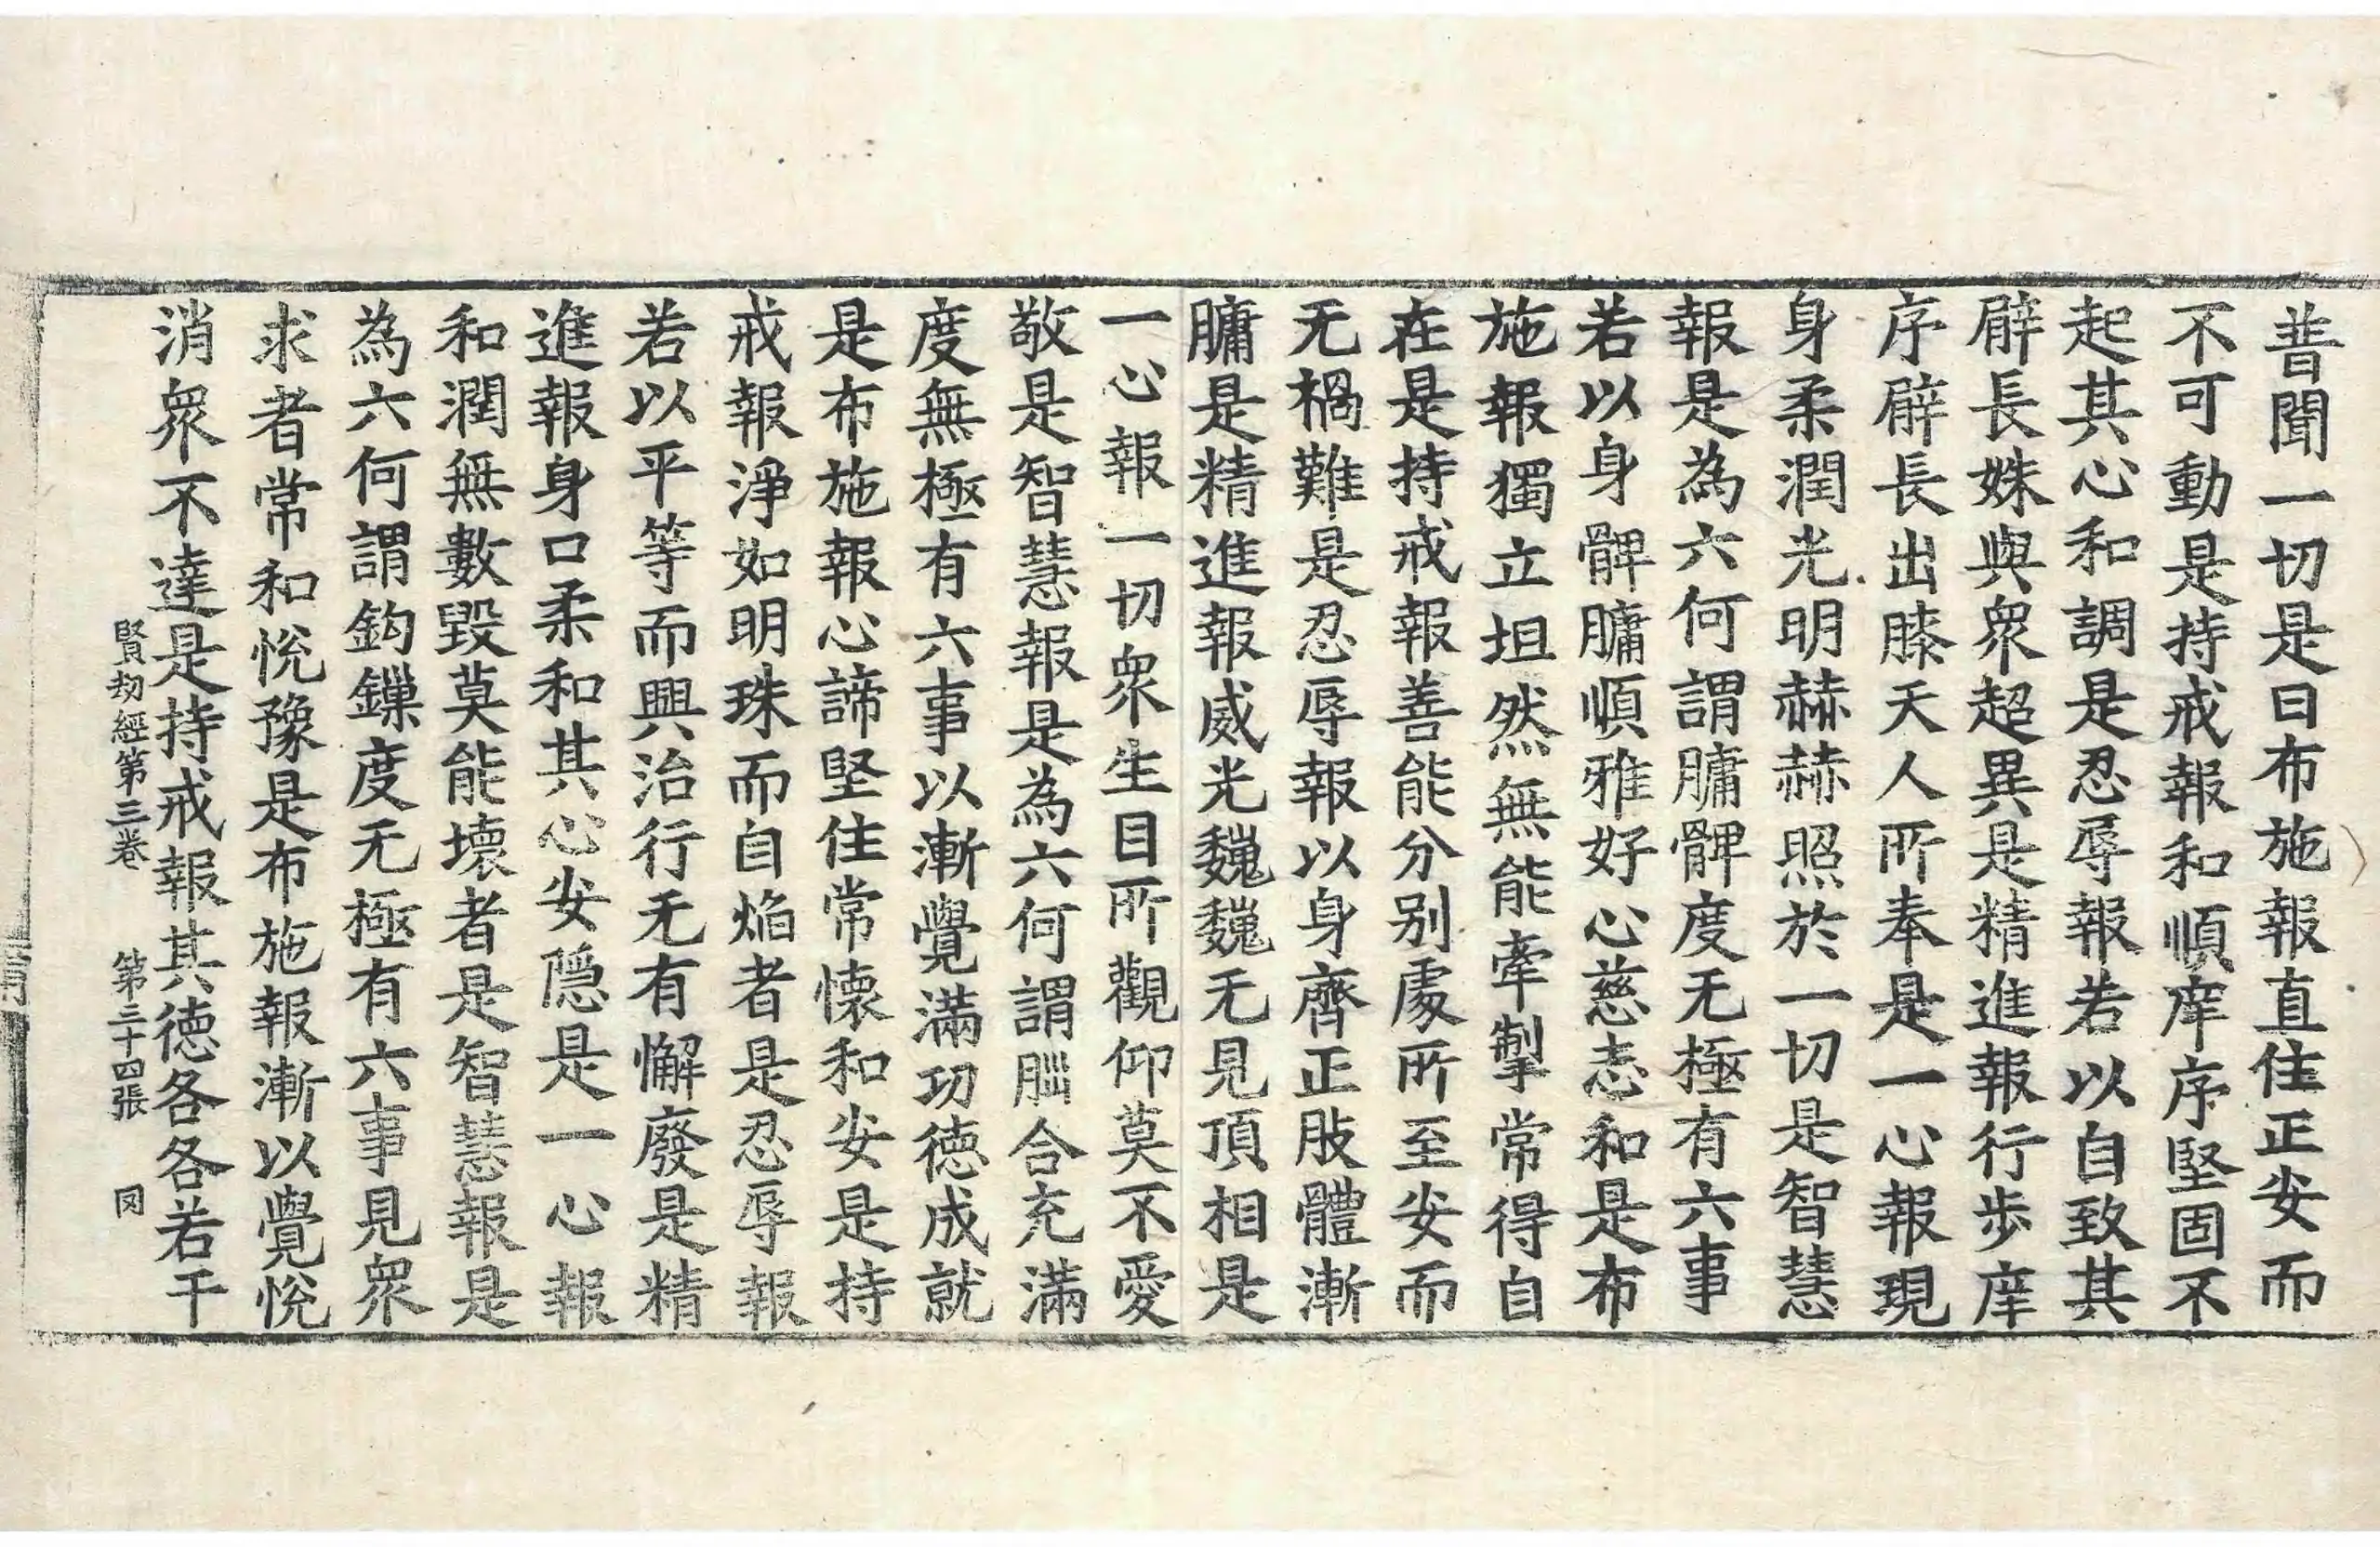 普聞一切是曰布施報直住正安而
不可動是持戒報和順庠序堅固不
起其心和調是忍辱報若以自致其
臂長姝與衆超異是精進報行步庠
序臂長出膝天人所奉是一心報現
身柔潤光明赫赫照於一切是智慧
報是為六何謂𦟛髀度无極有六事
若以身髀𦟛順雅好心慈志和是布
施報獨立坦然無能牽掣常得自
在是持戒報善能分别處所至安而
无禍難是忍辱報以身齊正肢體漸
𦟛是精進報威光巍巍无見頂相是
一心報一切衆生目所觀仰莫不愛
敬是智慧報是為六何謂𦙄合充滿
度無極有六事以漸覺滿功徳成就
是布施報心諦堅住常懐和安是持
戒報淨如明珠而自焰者是忍辱報
若以平等而興治行无有懈廢是精
進報身口柔和其心安隱是一心報
和潤無數毀莫能壞者是智慧報是
為六何謂鈎鏁度无極有六事見衆
求者常和悅豫是布施報漸以覺悅
消衆不達是持戒報其徳各各若干
賢劫經第三卷 第三十四張 罔